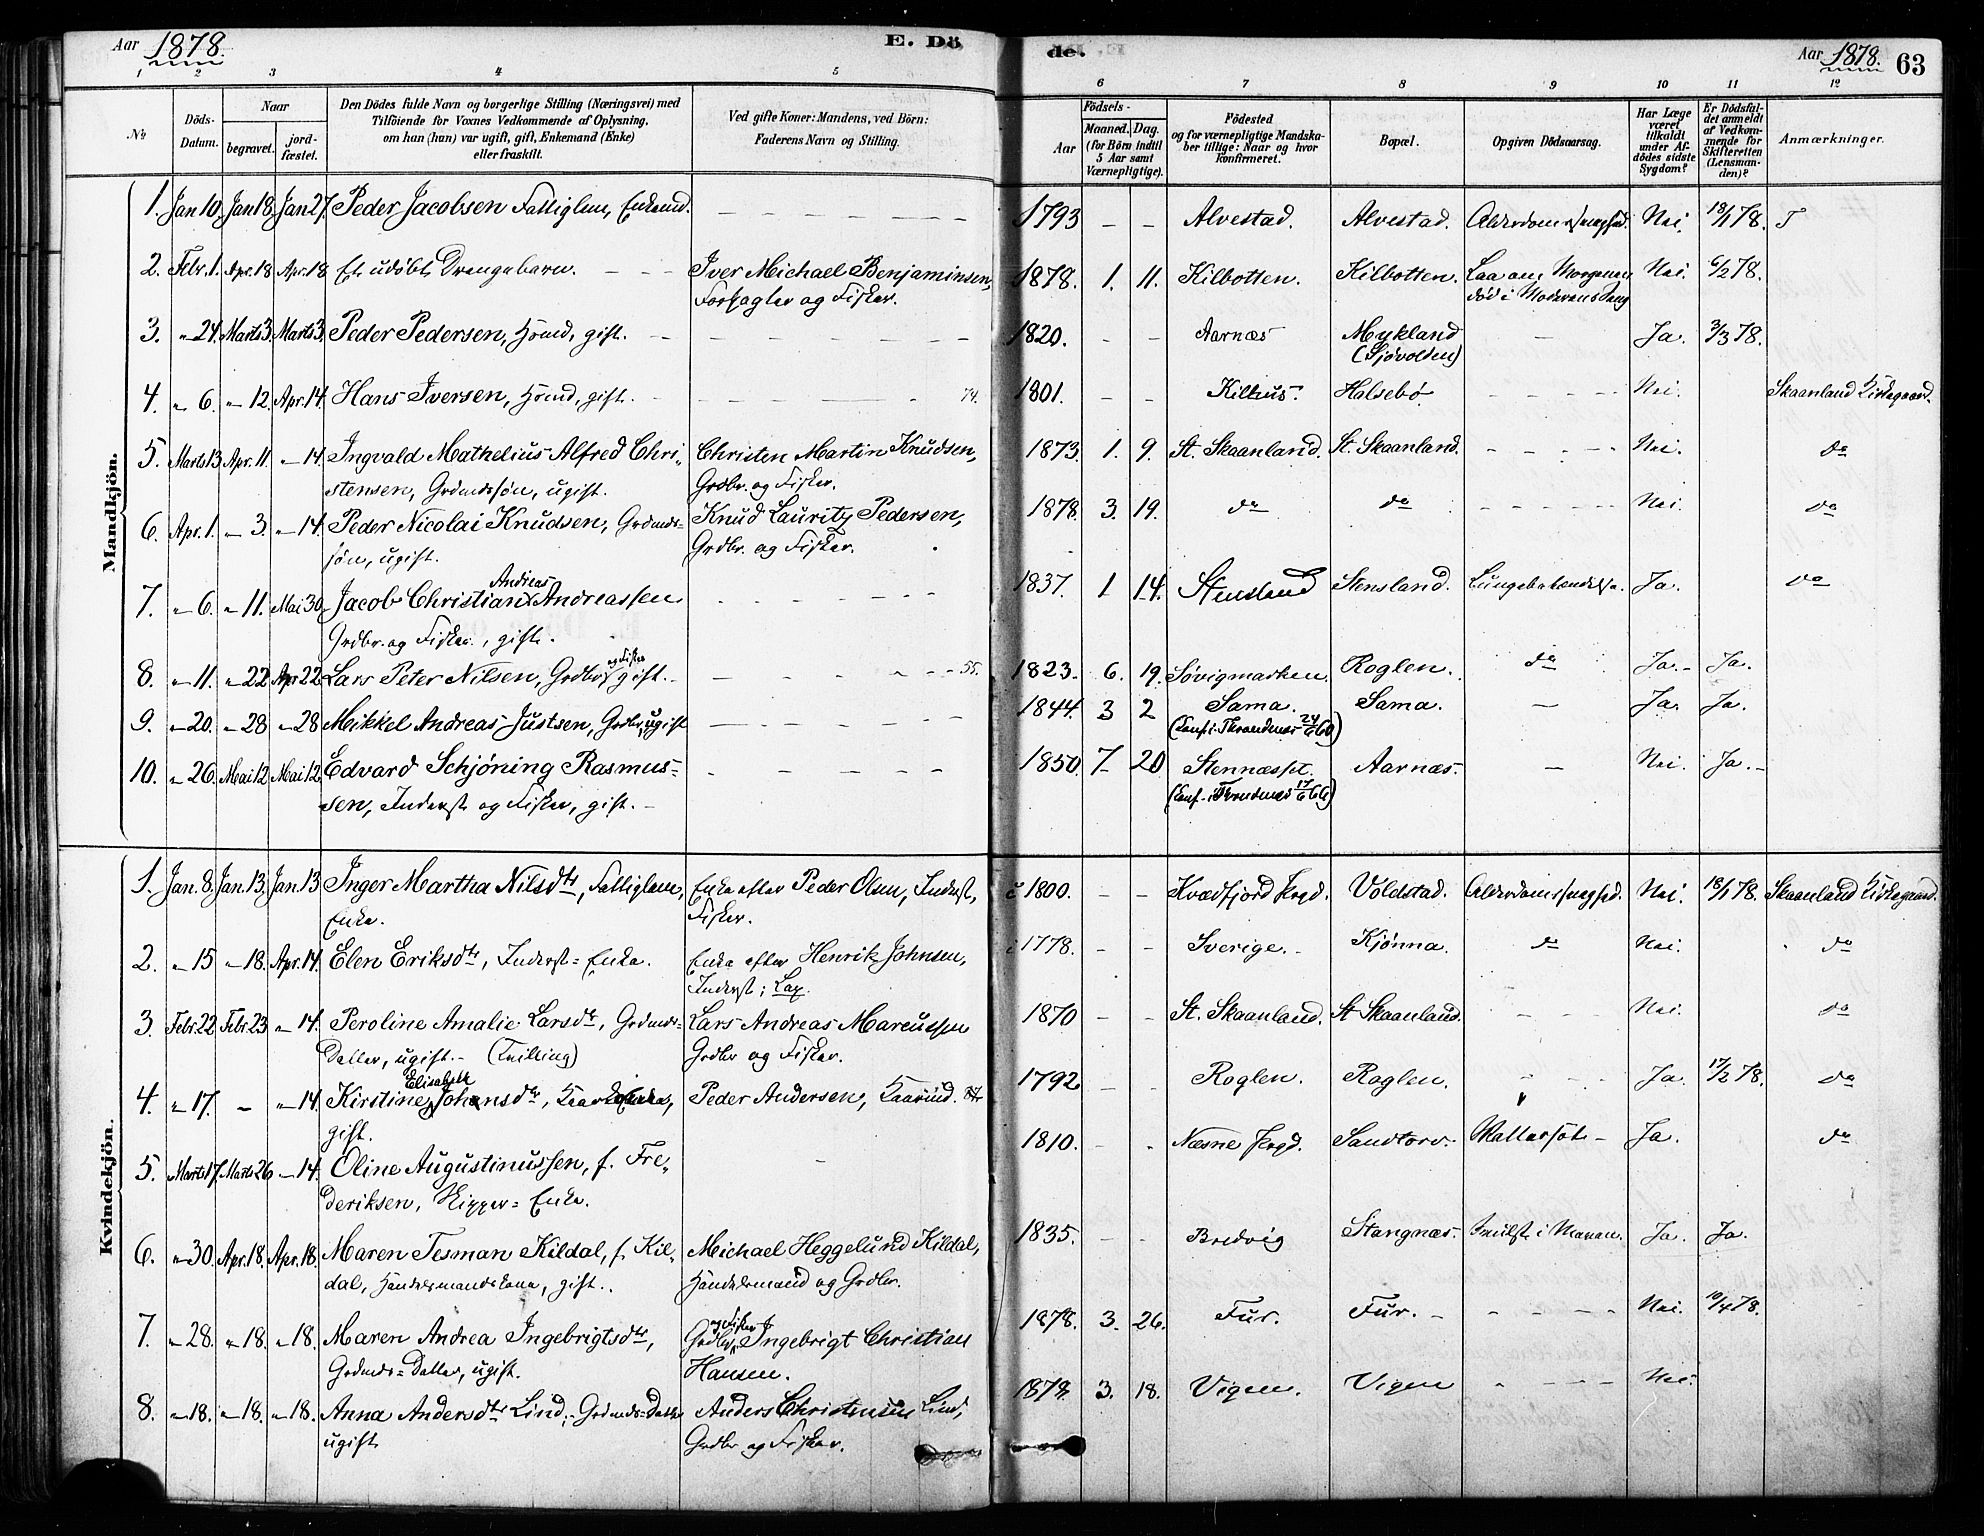 Aar 1878. E. Dö de. Aar 1878. 63
1 2 3 4 5 6 7 8 9 10 11 12
№ Döds-Datum. Naar begravet. jord-fæstet. Den Dödes fulde Navn og borgerlige Stilling (Næringsvei) med Tilföiende for Voxnes Vedkommende af Oplysning, om han (hun) var ugift, gift, Enkemand (Enke) eller fraskilt. Ved gifte Koner: Mandens, ved Börn: Faderens Navn og Stilling. Födsels- Aar Maaned. Dag. (for Börn indtil 5 Aar samt Værnepligtige). Födested og for værnepligtige Mandskaber tillige: Naar og hvor konfirmeret. Bopæl. Opgiven Dödsaarsag. Har Læge været tilkaldt under Afdödes sidste Sygdom? Er Dödsfaldet anmeldt af Vedkommende for Skifteretten (Lensmanden)? Anmærkninger.
Mandkjön.
1. Jan 10. Jan 18. Jan 27. Peder Jacobsen Fattiglem, Enkemd. 1793 – – Alvestad. Alvestad. Alderdomssvaghed. Nei. 18/1 78. T
2. Febr. 1. Apr. 18 Apr. 18 Et udöbt Drengebarn. Iver Michael Benjaminsen, 1878. 1. 11. Kilbotten. Kilbotten. Laa om Morgenen Nei. 6/2 78.
Forpagter og Fisker. död i Moderens Seng
3. " 24. Marts 3. Marts 3. Peder Pedersen, Hmnd, gift. 1820. – – Aarnæs Mykland – Ja. 3/3 78.
(Sjøvolden)
4. " 6. " 12. Apr. 14. Hans Iversen, Hmnd, gift. 74. 1801. – – Kilhus. Halsebø Nei. Skaanland Kirkegaard.
5. Marts 13 Apr. 11. " 14. Ingvald Mathelius Alfred Chri- Christen Martin Knudsen, 1873. 1. 9. St. Skaanland. St. Skaanland. Nei. do
stensen, Grdmdssøn, ugift. Grdbr. og Fisker.
6. Apr. 1. " 3. " 14. Peder Nicolai Knudsen, Grdmds- Knud Lauritz Pedersen, 1878. 3. 19. do do Nei. do
søn, ugift. Grdbr. og Fisker.
Andreas
7. " 6. " 11. Mai 30. Jacob Christian Andreassen 1837. 1 14. Stensland Stensland. Lungebetændelse. Ja. do
Grdbr. og Fisker, gift.
og Fisker
8. " 11. " 22 Apr 22 Lars Peter Nilsen, Grdbr, gift. 55. 1823. 6. 19. Søvigmarken. Roglen. do Ja. Ja.
9. " 20. " 28 " 28 Mikkel Andreas Justsen, Grdbr, ugift 1844. 3 2 Sama. Sama. – Ja. Ja.
(Conf. i Throndenæs 24/6 60)
10. " 26. Mai 12. Mai 12. Edvard Schjöning Rasmus- 1850. 7 20. Stennæsset. Aarnæs. – Nei. Ja.
sen, Inderst og Fisker, gift. (Conf. i Throndenæs 17/6 66)
Kvindekjön.
1. Jan. 8. Jan. 13. Jan. 13 Inger Martha Nilsdtr, Fattiglem, Enke efter Peder Olsen, Inderst, c 1800. – – Kvædfjord Prgd. Voldstad. Alderdomssvaghed. Nei. 18/1 78. Skaanland Kirkegaard.
Enke. Fisker.
2. " 15 " 18. Apr. 14. Elen Eriksdtr, Inderst-Enke. Enke efter Henrik Johnsen, c 1778. – – Sverige. Kjønna. do Nei. do
Inderst; Lap.
3. Febr. 22 Febr. 23 " 14. Peroline Amalie Larsdtr, Grdmds- Lars Andreas Marcussen 1870 – – St. Skaanland. St Skaanland. Nei. do
Datter, ugift. (Tvilling) Grdbr og Fisker.
Elisabeth
4. " 17. – " 14. Kirstine Johansdtr, Kaarkone, Peder Andersen, Kaarmd. 1792 Roglen. Roglen. Ja. 17/2 78. do
gift.
5. Marts 17. Marts 26 " 14. Oline Augustinussen, f. Fre- – 1810. Næsne Prgd. Sandtorv. Vattersot Ja. do
deriksen, Skipper-Enke.
6. " 30. Apr. 18. Apr. 18. Maren Tesman Kildal, f. Kil- Michael Heggelund Kildal, 1835. – – Bredvig Stangnæs. Svulst i Maven. Ja. Ja.
dal, Handelsmandskone, gift. Handelsmand og Grdbr.
og Fisker
7. " 28. " 18. " 18. Maren Andrea Ingebrigtsdtr, Grdbr, Ingebrigt Christian 1878. 3. 26. Fur. Fur. Nei. 10/4 78.
Grdmds-Datter, ugift. Hansen.
8. " 18. " 18. " 18. Anna Andersdtr Lind, Grdmds-Datter Anders Christensen Lind, 1878. 3. 18. Vigen. Vigen Nei.
ugift Grdbr og Fisker.